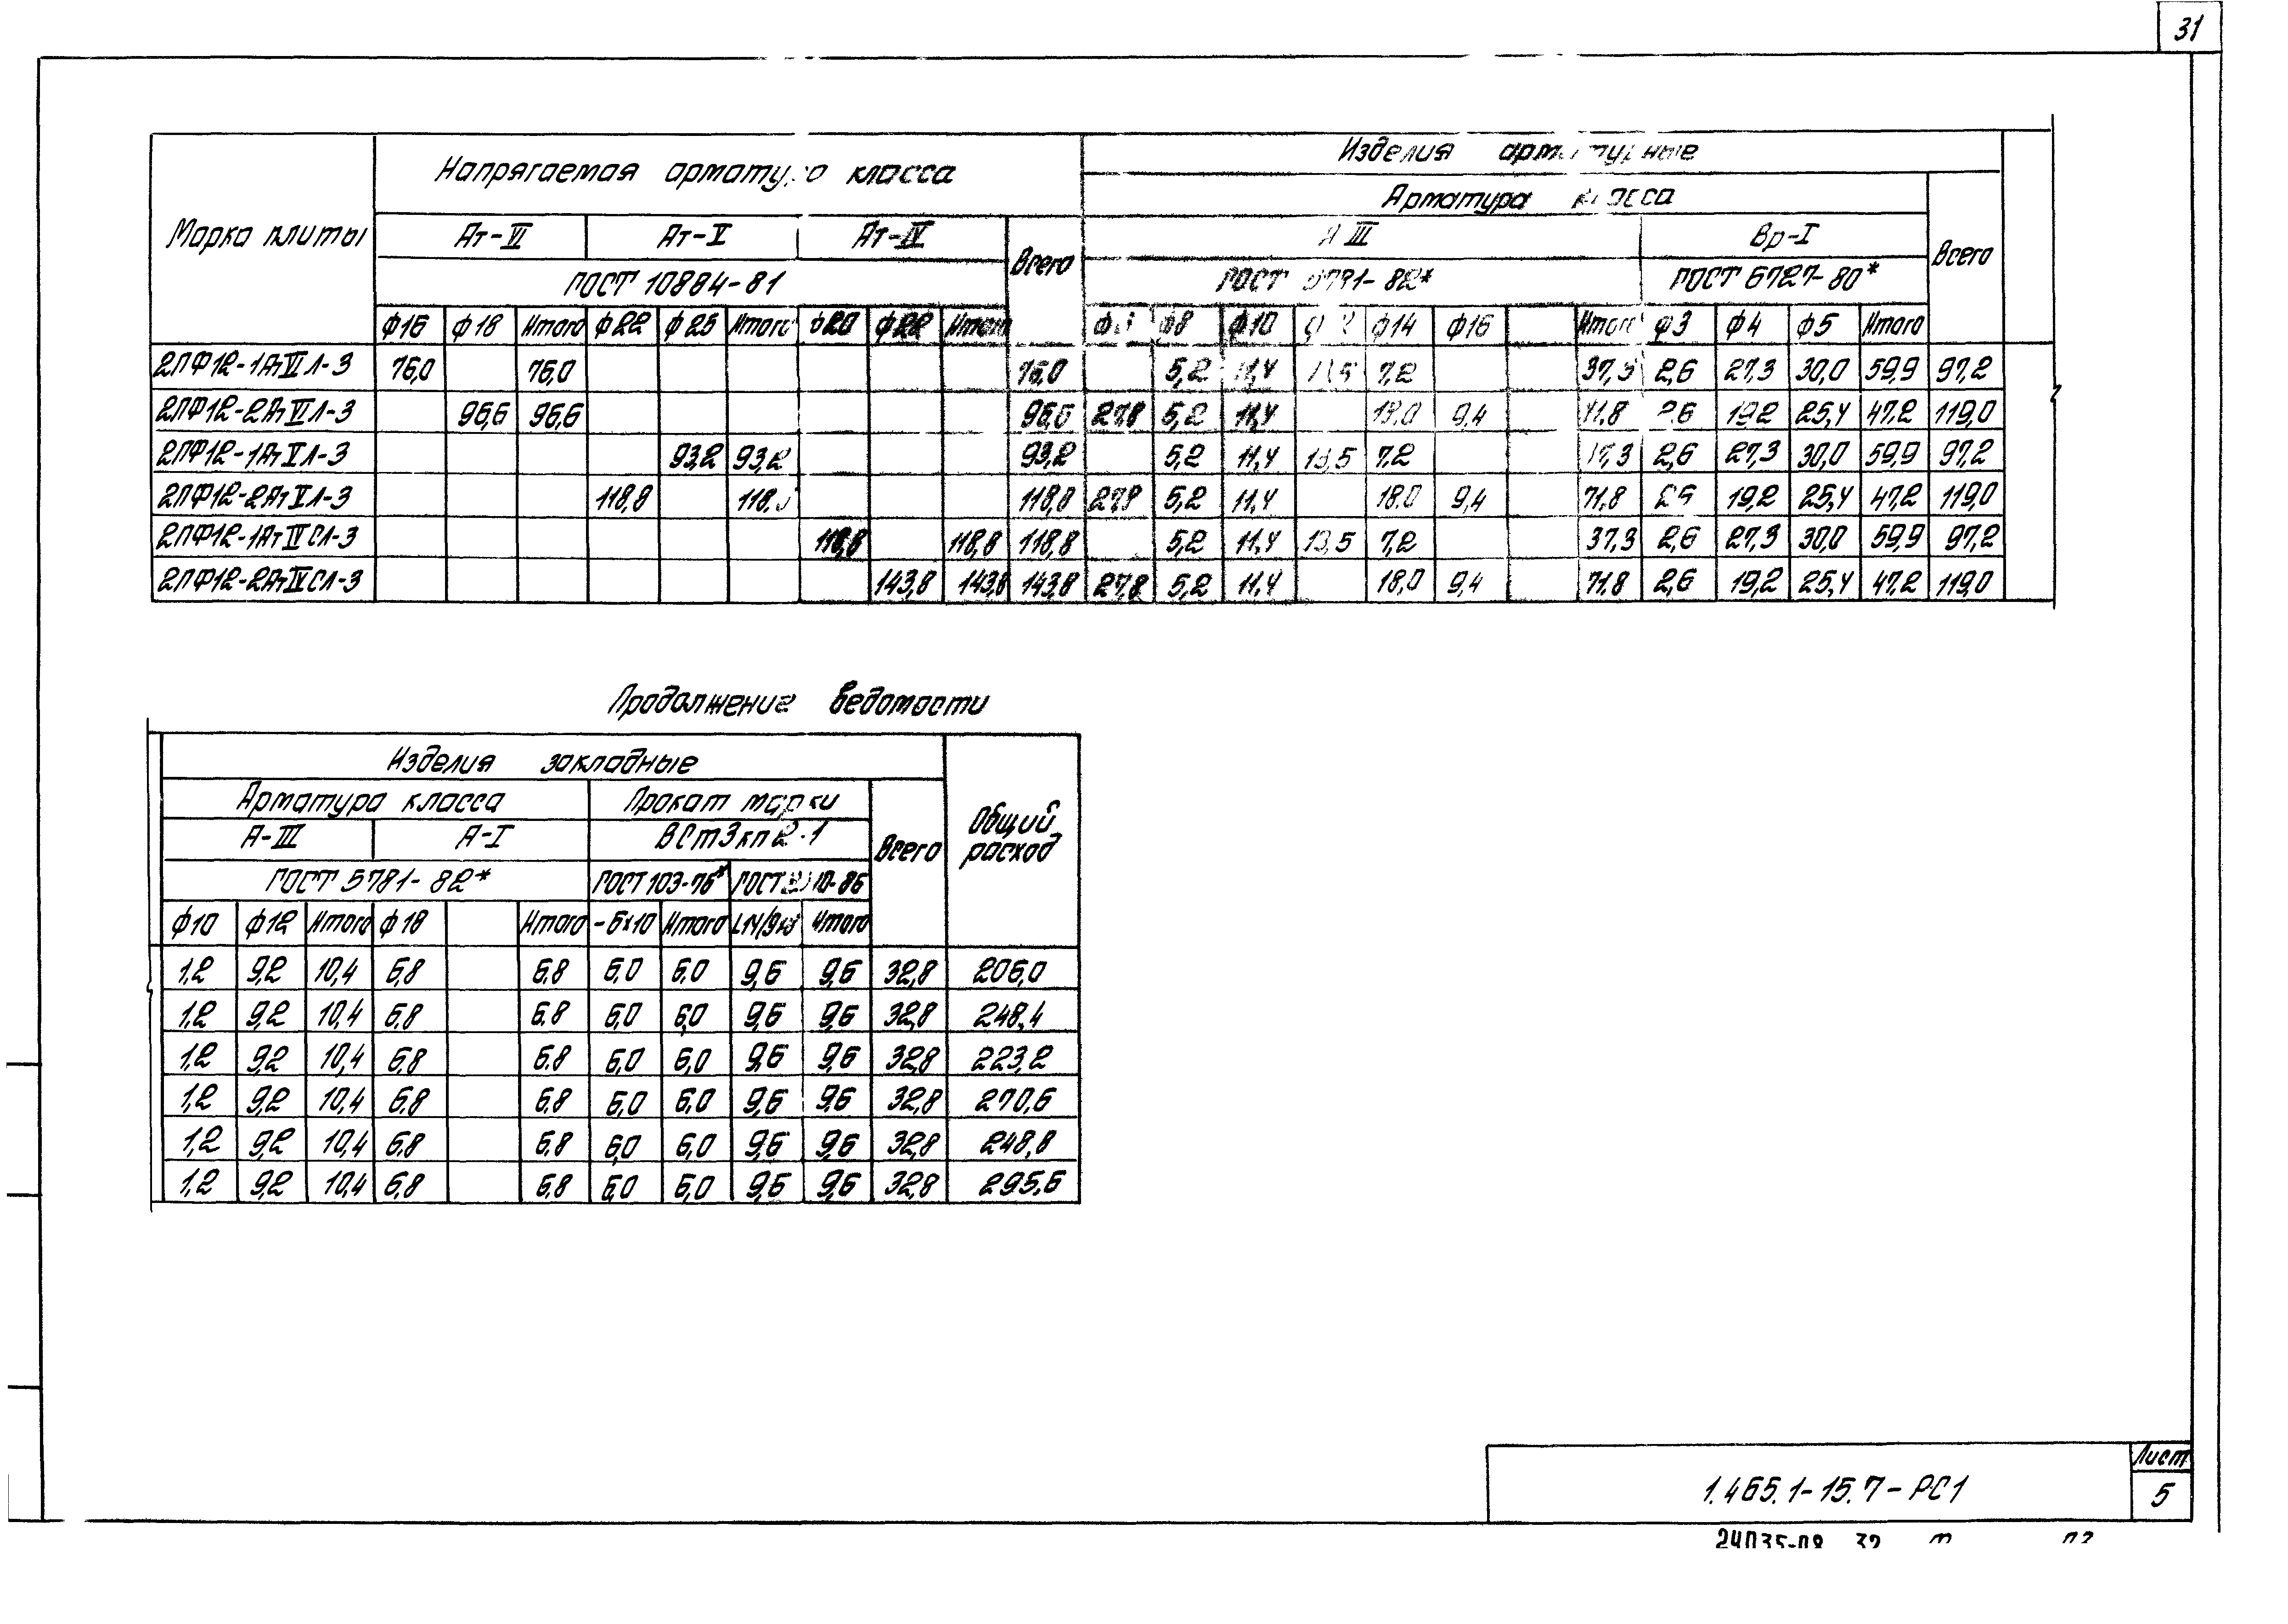 31
Марка плиты
Напрягаемая арматура класса
Ат-VI Ат-V Ат-IV
ГОСТ 10884-81
Всего
Изделия арматурные
Арматура класса
А III Вр-I
ГОСТ 5781-82* ГОСТ 6727-80*
Всего
ф16 ф18 Итого ф22 ф25 Итого ф20 ф22 Итого ф8 ф10 ф14 ф16 Итого ф3 ф4 ф5 Итого
2ПФ12-1АтVIЛ-3 76,0 76,0 76,0 5,2 11,4 13,5 7,2 37,3 2,6 27,3 30,0 59,9 97,2
2ПФ12-2АтVIЛ-3 96,6 96,6 96,6 27,8 5,2 11,4 18,0 9,4 71,8 2,6 19,2 25,4 47,2 119,0
2ПФ12-1АтVЛ-3 93,2 93,2 93,2 5,2 11,4 13,5 7,2 37,3 2,6 27,3 30,0 59,9 97,2
2ПФ12-2АтVЛ-3 118,8 118,8 118,8 27,8 5,2 11,4 18,0 9,4 71,8 2,6 19,2 25,4 47,2 119,0
2ПФ12-1АтIVСЛ-3 118,8 118,8 118,8 5,2 11,4 13,5 7,2 37,3 2,6 27,3 30,0 59,9 97,2
2ПФ12-2АтIVСЛ-3 143,8 143,8 143,8 27,8 5,2 11,4 18,0 9,4 71,8 2,6 19,2 25,4 47,2 119,0
Продолжение ведомости
Изделия закладные
Арматура класса Прокат марки
А-III А-I ВСт3кп2-1
Всего
Общий расход
ГОСТ 5781-82* ГОСТ 103-76*
ф10 ф12 Итого ф18 Итого -6х10 Итого Итого
1,2 9,2 10,4 6,8 6,8 6,0 6,0 9,6 9,6 32,8 206,0
1,2 9,2 10,4 6,8 6,8 6,0 6,0 9,6 9,6 32,8 248,4
1,2 9,2 10,4 6,8 6,8 6,0 6,0 9,6 9,6 32,8 223,2
1,2 9,2 10,4 6,8 6,8 6,0 6,0 9,6 9,6 32,8 270,6
1,2 9,2 10,4 6,8 6,8 6,0 6,0 9,6 9,6 32,8 248,8
1,2 9,2 10,4 6,8 6,8 6,0 6,0 9,6 9,6 32,8 295,6
1.465.1-15.7-РС1
Лист
5
24035-08 32